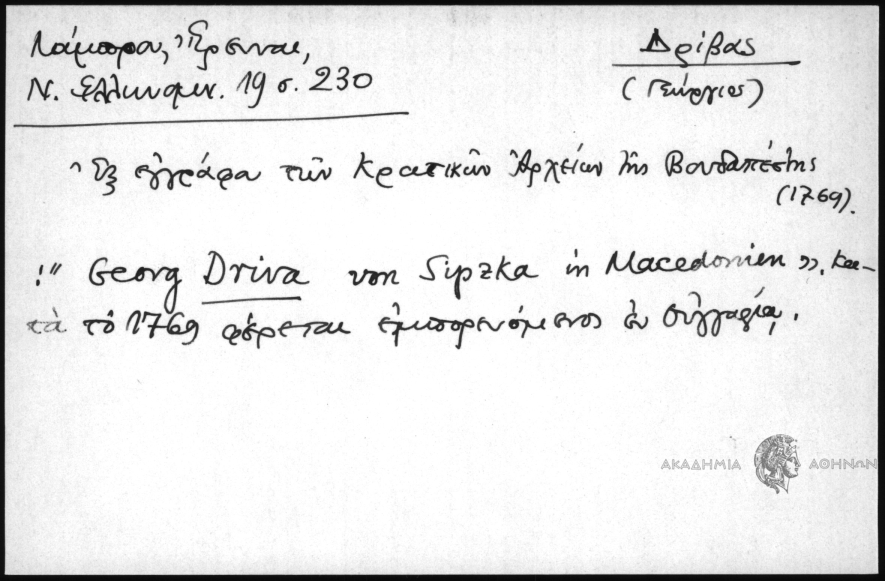 Λάμπρου, Ἔρευναι,
Ν. Ἑλληνομν. 19 σ. 230
Δρίβας
(Γεώργιος)
Ἐξ ἐγγράφων τῶν Κρατικῶν Ἀρχείων τῆς Βουδαπέστης
(1769).
Georg Driva von Sipzka in Macedonien », κα-
τὰ τὸ 1769 φέρεται ἐμπορευόμενος ἐν Οὑγγαρίᾳ.
ΑΚΑΔΗΜΙΑ ΑΘΗΝΩΝ